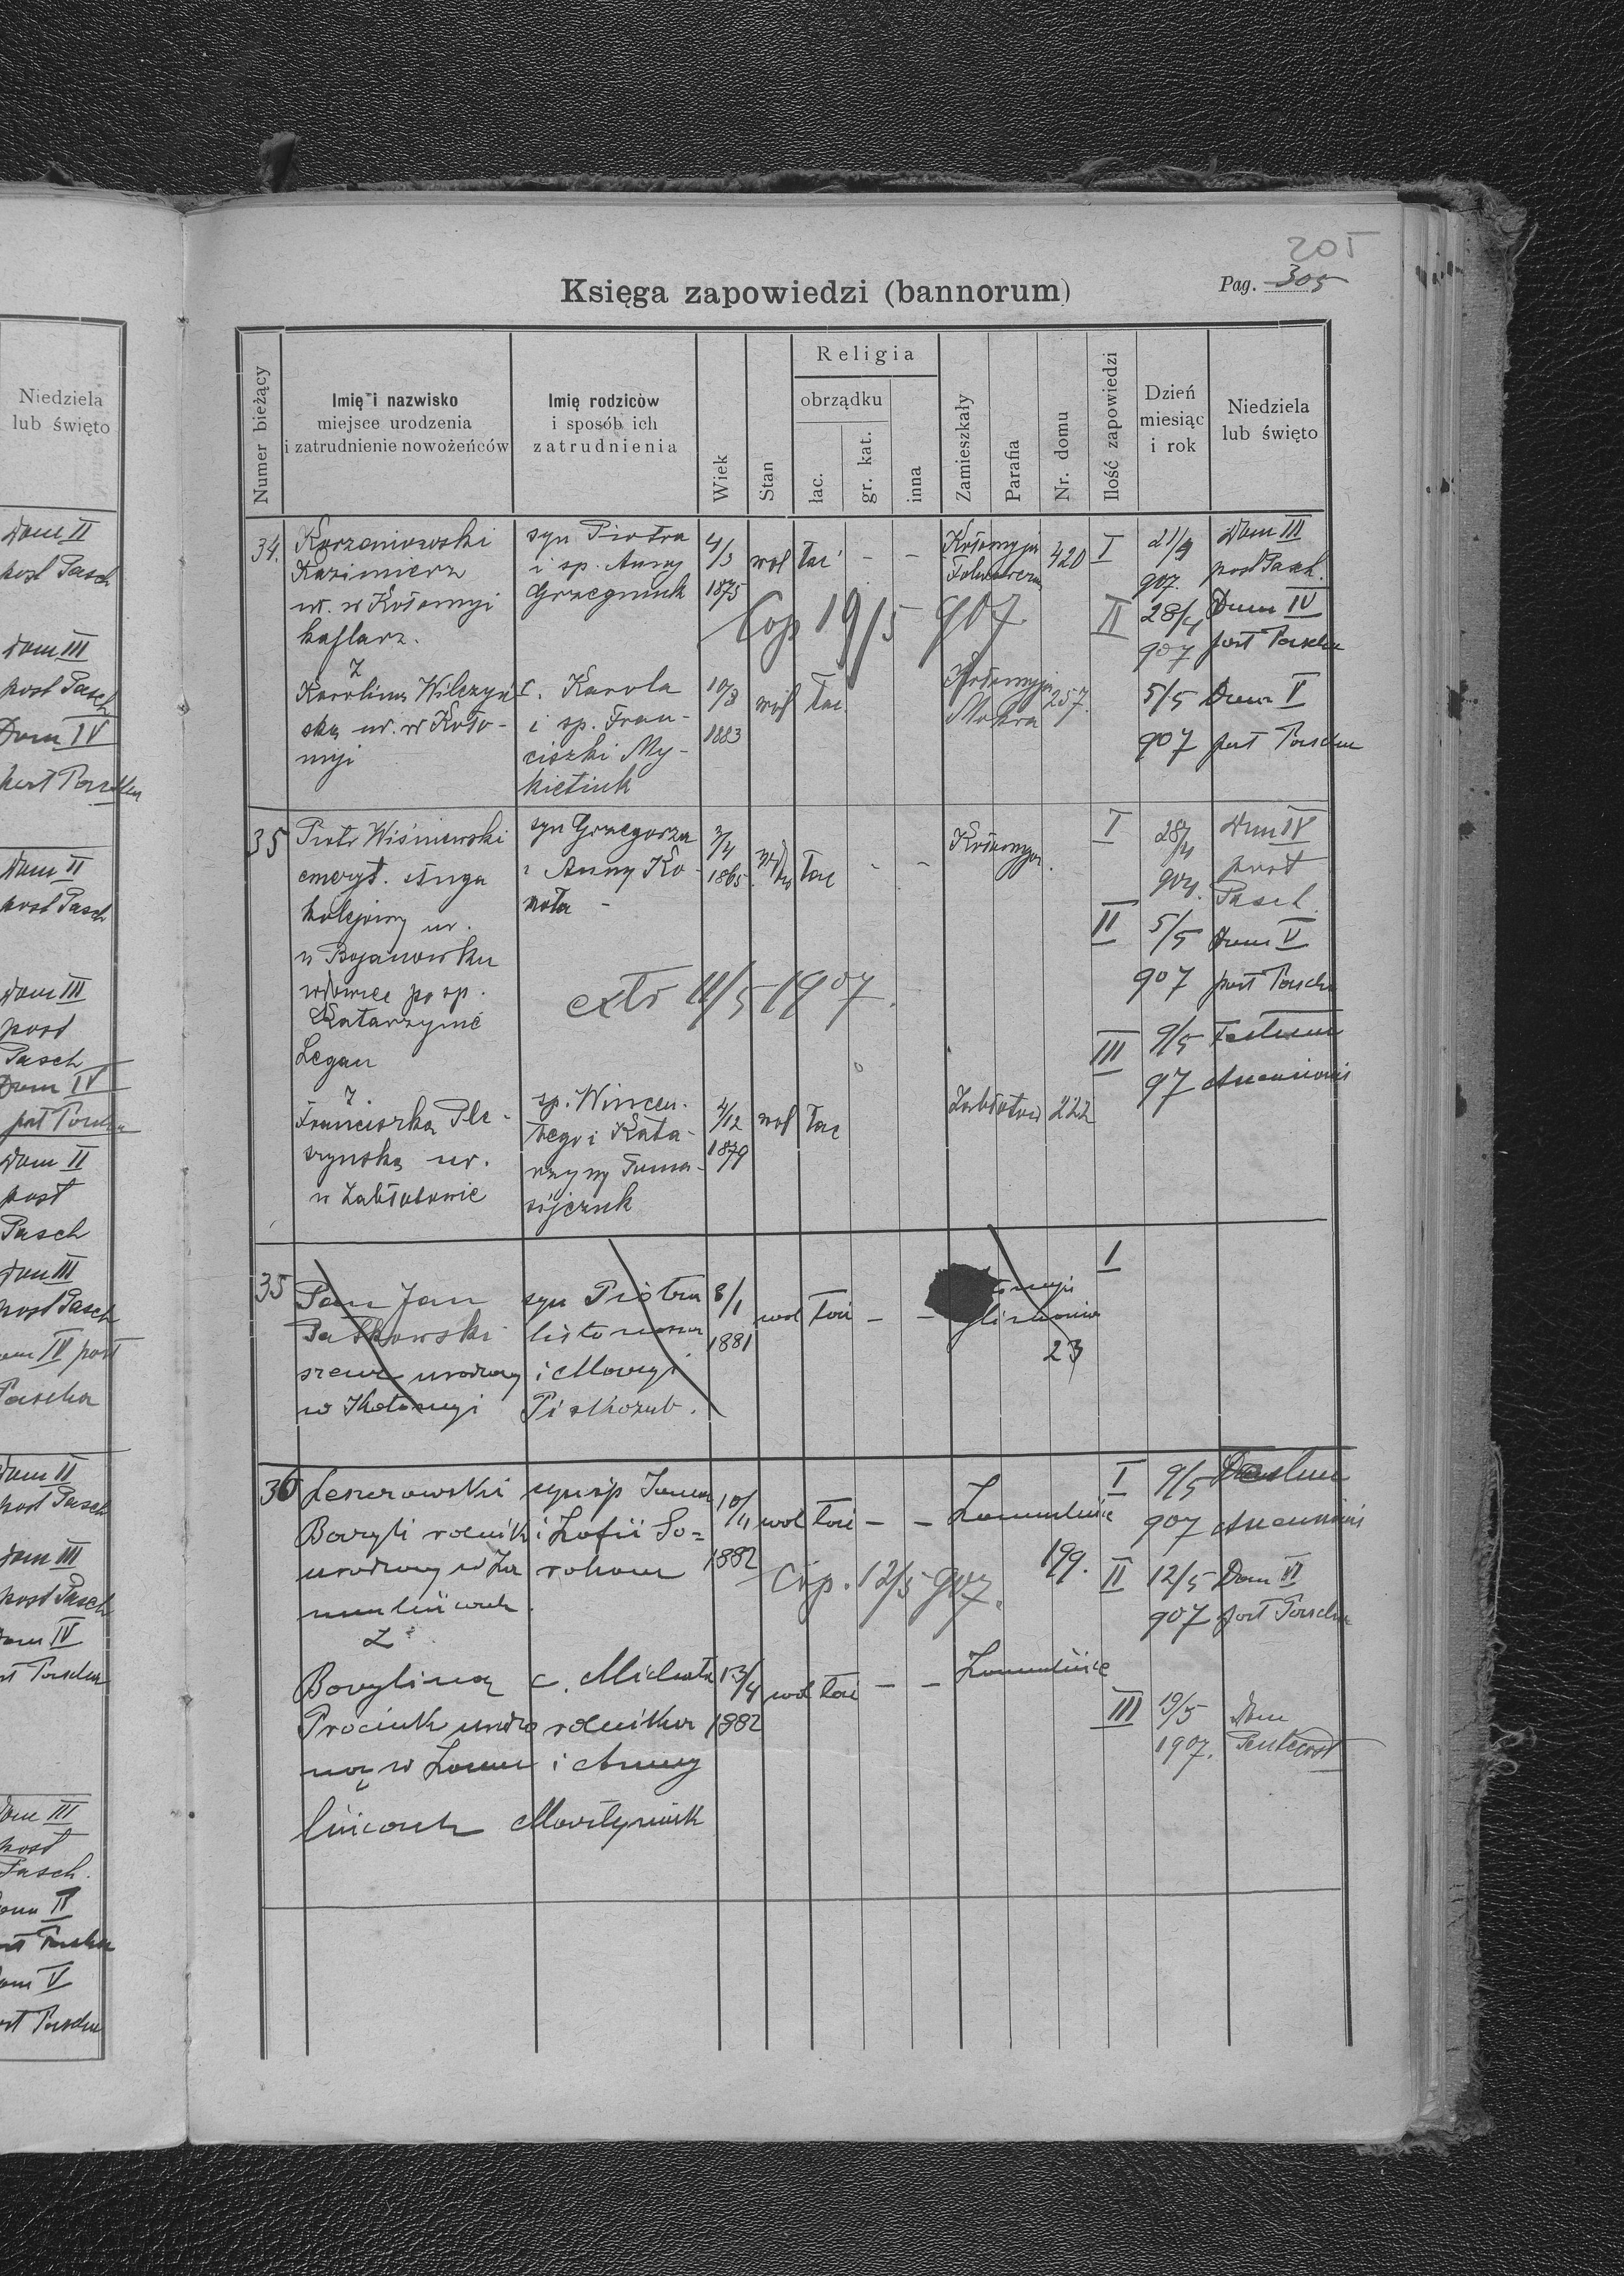 205
Księga zapowiedzi (bannorum)
Pag. 305
Niedziela
lub święto
Numer bieżący
Imię i nazwisko
miejsce urodzenia
i zatrudnienie nowożeńców
Imię rodziców
i sposób ich
zatrudnienia
Wiek
Stan
Religia
obrządku
łac.
gr. kat.
inna
Zamieszkały
Parafia
Nr. domu
Ilość zapowiedzi
Dzień
miesiąc
i rok
Niedziela
lub święto
34. Korzeniowski syn Piotra 4/3 wol łać - - Kołomyja 420 I 21/4 Dom III
Kazimierz i sp. Anny 1875 907. post Pasch.
ur. w Kołomyi Grzegniuk
kaflarz.
Cop 19/5 907
II 28/4 Dom IV
907 post Pascha
z
Karolina Wilczyń c. Karola 10/8 wol łac. Kołomyja 257. 5/5 Dom V
ska ur. w Koło- i sp. Fran- 1883 Mokra 907 post Pascha
myi ciszki My-
kietiuk
35 Piotr Wiśniewski syn Grzegorza 3/4 łac - - Kołomyja. I 28/4 Dom IV
emeryt. sługa i Anny Ko- 1865. 907. post
kolejowy ur. nota - Pasch.
w Bojanowsku II 5/5 Dom V
wdowiec po sp. 907 post Pascha
Katarzynie
exto 11/5 1907.
Legan III 9/5 Festum
97 Ascensionis
z
Franciszka Ple- sp. Wincen- 4/12 wol łac Zabłotów 222
szynska ur. tego i Kata- 1879
w Zabłotowie rzyny Toma-
sijczuk
35 Pan Jan syn Piotra 8/1 wol łać - - I
Patkowski listonosza 1881
szewc urodzony i Maryi 23
w Kołomyi Piskozub.
36 syn sp Jana 10/11 wol łać - - I 9/5
rolnik i Zofii So= 1882 907 Ascensionis
urodzony w Za rohan 199. II 12/5 Dom VI
Cop. 12/5 907.
907 post Pascha
Z
c. Michała 13/4 wol łać - -
Prociuk urodzo rolnika 1882 III 19/5 Dom
ną w i Anny 1907. Pentecost
Martyniuk
Dom II
post Pasch
Dom III
post Pasch
Dom IV
post Pascha
Dom II
post Pasch
Dom III
post
Pasch
Dom IV
post Pascha
Dom II
post
Pasch
Dom III
post Pasch
IV post
Pascha
Dom II
post Pasch
Dom III
post Pasch
IV
Pascha
Dom III
post
Pasch.
II
Pascha
V
Pascha